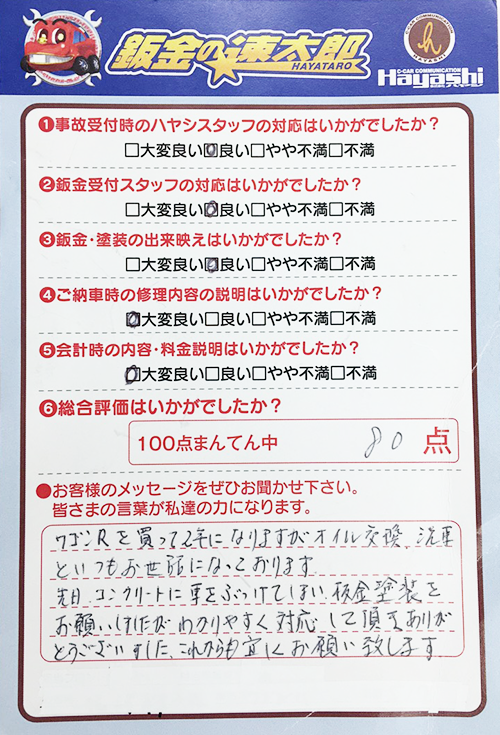 鈑金の速太郎
HAYATARO
CAR COMMUNICATION
HAYASHI
C-CAR COMMUNICATION
Hayashi
❶事故受付時のハヤシスタッフの対応はいかがでしたか？
□大変良い□良い□やや不満□不満
❷鈑金受付スタッフの対応はいかがでしたか？
□大変良い□良い□やや不満□不満
❸鈑金・塗装の出来映えはいかがでしたか？
□大変良い□良い□やや不満□不満
❹ご納車時の修理内容の説明はいかがでしたか？
□大変良い□良い□やや不満□不満
❺会計時の内容・料金説明はいかがでしたか？
□大変良い□良い□やや不満□不満
❻総合評価はいかがでしたか？
100点まんてん中 80 点
●お客様のメッセージをぜひお聞かせ下さい。
皆さまの言葉が私達の力になります。
ワゴンRを買って2年になりますがオイル交換、洗車
といつもお世話になっております
先日、コンクリートに車をぶつけてしまい、板金塗装を
お願いしましたがわかりやすく対応して頂きありが
とうございました、これからも宜しくお願い致します